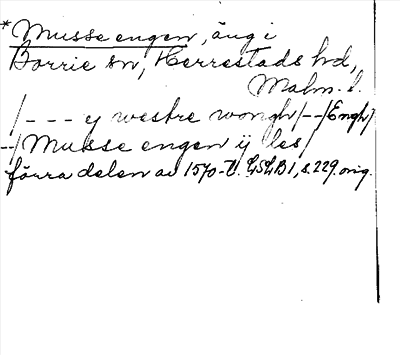 *Musse engen, äng i
Borrie sn, Herrestads hd,
Malm. l.
/--- y westre wongh/--/Engh/
--/Musse engen ij les/
förra delen av 1570-t. LSLB 1, s. 229. orig.